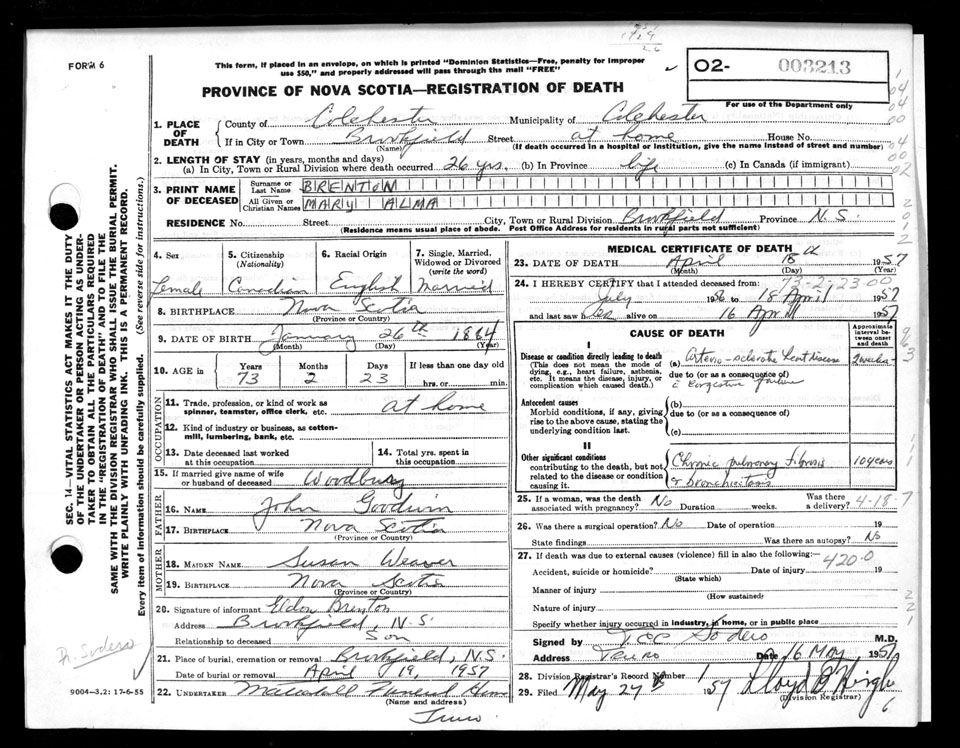 1929
26
FORM 6
This form, if placed in an envelope, on which is printed "Dominion Statistics—Free, penalty for improper
use $50," and properly addressed will pass through the mail "FREE"
O2- 003213
PROVINCE OF NOVA SCOTIA—REGISTRATION OF DEATH
For use of the Department only
1. PLACE OF DEATH
County of Colchester Municipality of Colchester
If in City or Town Brookfield Street at home House No.
(Name) (If death occurred in a hospital or institution, give the name instead of street and number)
2. LENGTH OF STAY (in years, months and days)
(a) In City, Town or Rural Division where death occurred 26 yrs. (b) In Province life (c) In Canada (if immigrant)
3. PRINT NAME OF DECEASED
Surname or Last Name BRENTON
All Given or Christian Names MARY ALMA
RESIDENCE No. Street City, Town or Rural Division Brookfield Province N.S.
(Residence means usual place of abode. Post Office Address for residents in rural parts not sufficient)
4. Sex
Female
5. Citizenship (Nationality)
Canadian
6. Racial Origin
English
7. Single, Married, Widowed or Divorced (write the word)
Married
8. BIRTHPLACE Nova Scotia
(Province or Country)
9. DATE OF BIRTH January 26th 1884
(Month) (Day) (Year)
10. AGE IN Years Months Days If less than one day old
73 2 23 hrs. or min.
OCCUPATION
11. Trade, profession, or kind of work as
spinner, teamster, office clerk, etc. at home
12. Kind of industry or business, as cotton-
mill, lumbering, bank, etc.
13. Date deceased last worked
at this occupation
14. Total yrs. spent in
this occupation
15. If married give name of wife
or husband of deceased Woodbury
FATHER
16. NAME John Goodwin
17. BIRTHPLACE Nova Scotia
(Province or Country)
MOTHER
18. MAIDEN NAME Susan Weaver
19. BIRTHPLACE Nova Scotia
(Province or Country)
20. Signature of informant Eldon Brenton
Address Brookfield, N.S.
Relationship to deceased Son
21. Place of burial, cremation or removal Brookfield, N.S.
Date of burial or removal April 19, 1957
22. UNDERTAKER Mattatall Funeral Home
(Name and address)
Truro
MEDICAL CERTIFICATE OF DEATH
23. DATE OF DEATH April 18th 1957
(Month) (Day) (Year)
24. I HEREBY CERTIFY that I attended deceased from:
73-2-23-00
July 1936 to 18 April 1957
and last saw her alive on 16 April 1957
CAUSE OF DEATH
Approximate interval between onset and death
I
Disease or condition directly leading to death
(This does not mean the mode of
dying, e.g., heart failure, asthenia,
etc. It means the disease, injury, or
complication which caused death.)
(a) Arterio-sclerotic heart disease 2 weeks
due to (or as a consequence of)
c Congestive failure
Antecedent causes
Morbid conditions, if any, giving
rise to the above cause, stating the
underlying condition last.
(b)
due to (or as a consequence of)
(c)
II
Other significant conditions
contributing to the death, but not
related to the disease or condition
causing it.
Chronic pulmonary fibrosis 10 years
& bronchiectasis
25. If a woman, was the death
associated with pregnancy? No Duration weeks. Was there
a delivery?
4-18-7
26. Was there a surgical operation? No Date of operation 19
State findings Was there an autopsy? No
27. If death was due to external causes (violence) fill in also the following:—
420.0
Accident, suicide or homicide? Date of injury 19
(State which)
Manner of injury
(How sustained)
Nature of injury
Specify whether injury occurred in industry, in home, or in public place
Signed by T.C.C. Sodero M.D.
Address Truro Date 16 May 1957
28. Division Registrar's Record Number 1
29. Filed May 27th 1957 Lloyd B
(Division Registrar)
SEC. 14—VITAL STATISTICS ACT MAKES IT THE DUTY
OF THE UNDERTAKER OR PERSON ACTING AS UNDER-
TAKER TO OBTAIN ALL THE PARTICULARS REQUIRED
IN THE "REGISTRATION OF DEATH" AND TO FILE THE
SAME WITH THE DIVISION REGISTRAR WHO SHALL ISSUE THE BURIAL PERMIT.
WRITE PLAINLY WITH UNFADING INK. THIS IS A PERMANENT RECORD.
Every item of information should be carefully supplied. (See reverse side for instructions.)
Dr. Sodero
9004-3.2: 17-6-55